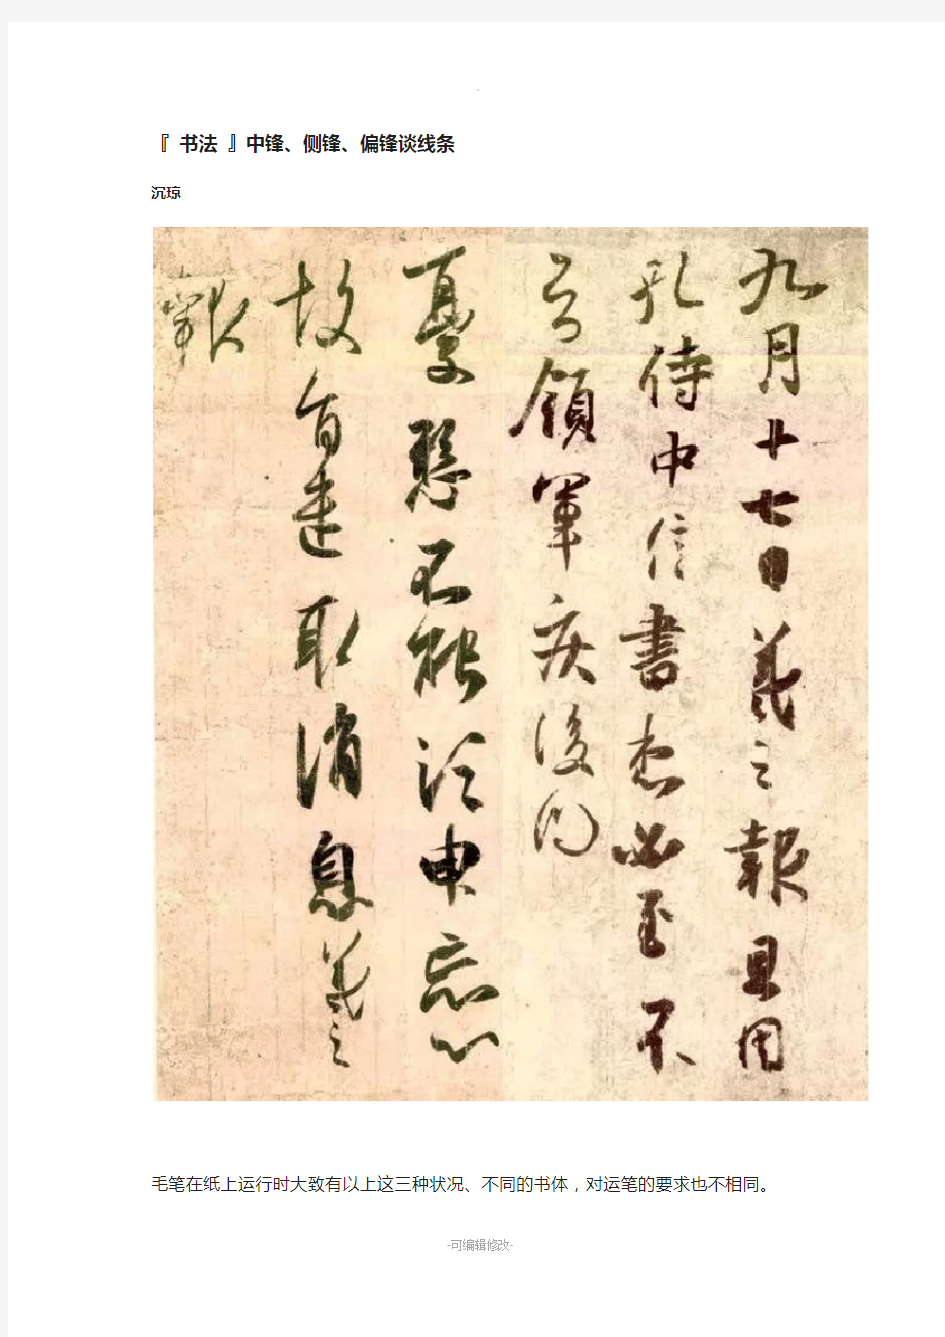 『 书法 』中锋、侧锋、偏锋谈线条
沉琼
九月十七日羲之報且因
孔侍中信書想必至不
知領軍疾後問
憂懸不能須臾忘心
故旨遣取消息羲之
報
毛笔在纸上运行时大致有以上这三种状况、不同的书体，对运笔的要求也不相同。
-可编辑修改-